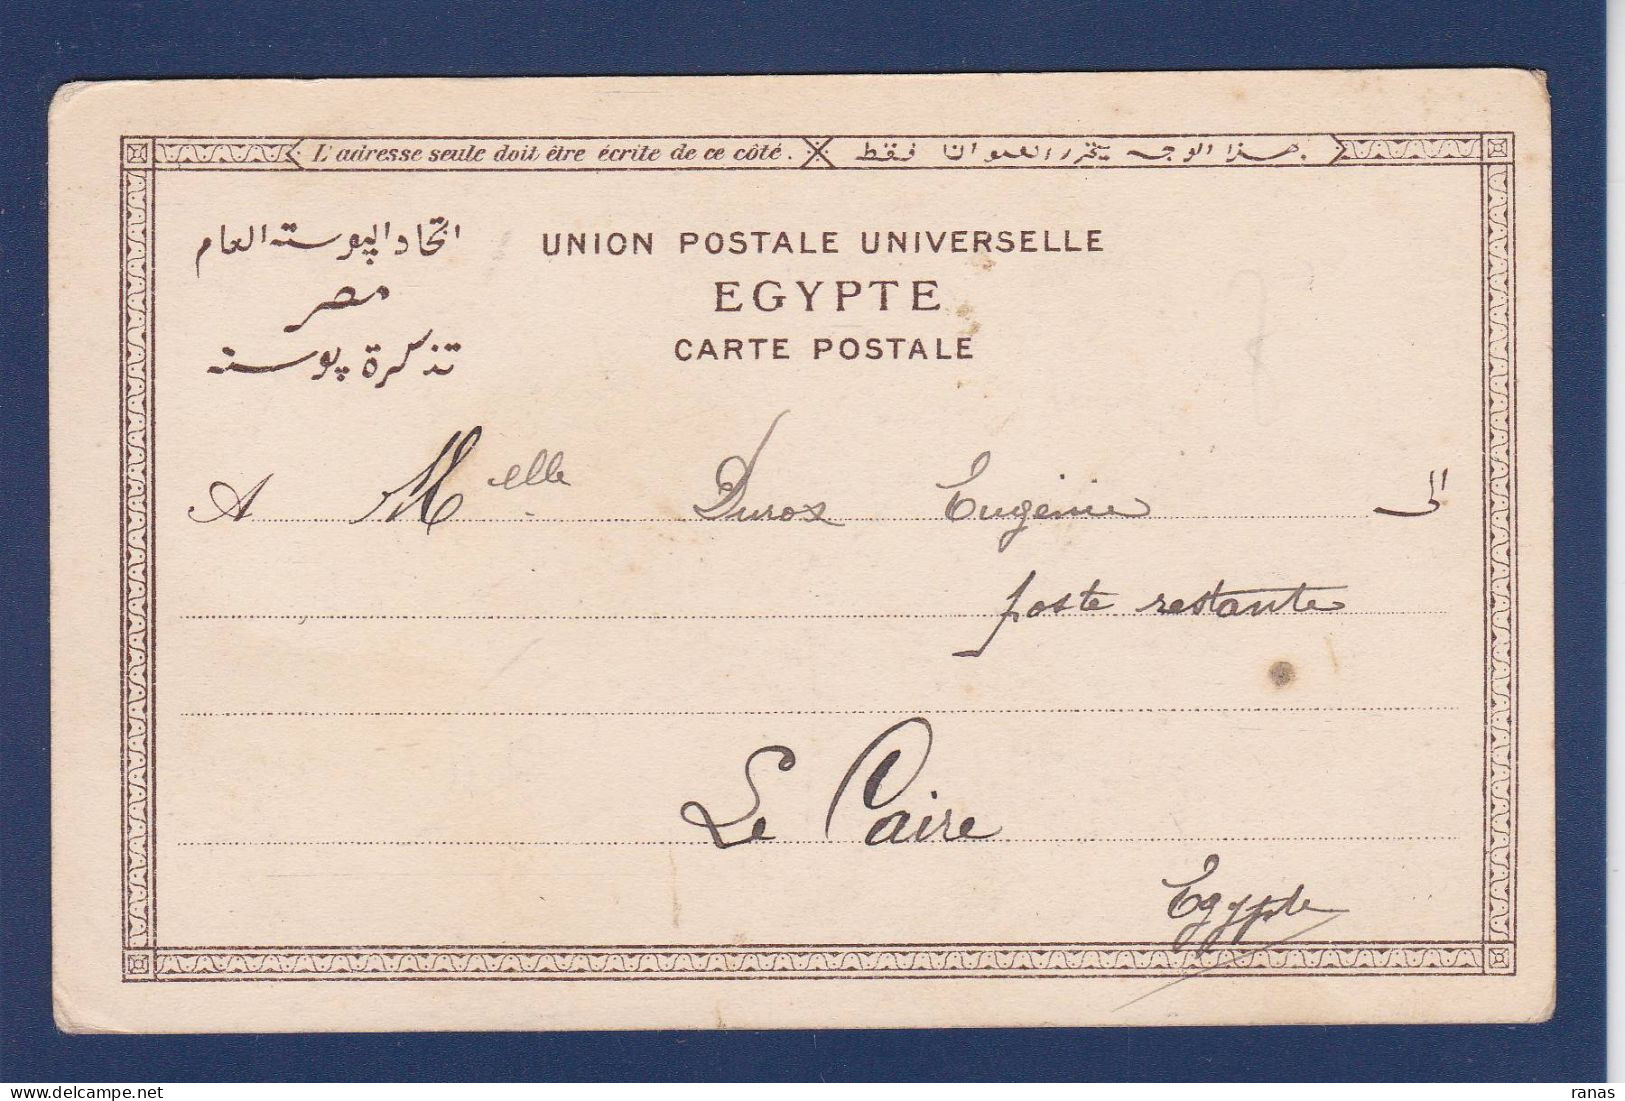 L'adresse seule doit être écrite de ce côté. هذا الوجه يتحرر العنوان فقط.
اتحاد البوسته العام
UNION POSTALE UNIVERSELLE
مصر
EGYPTE
تذكرة پوسته
CARTE POSTALE
A Melle Durox Eugénie الى
poste restante
Le Caire
Egypte
ranas